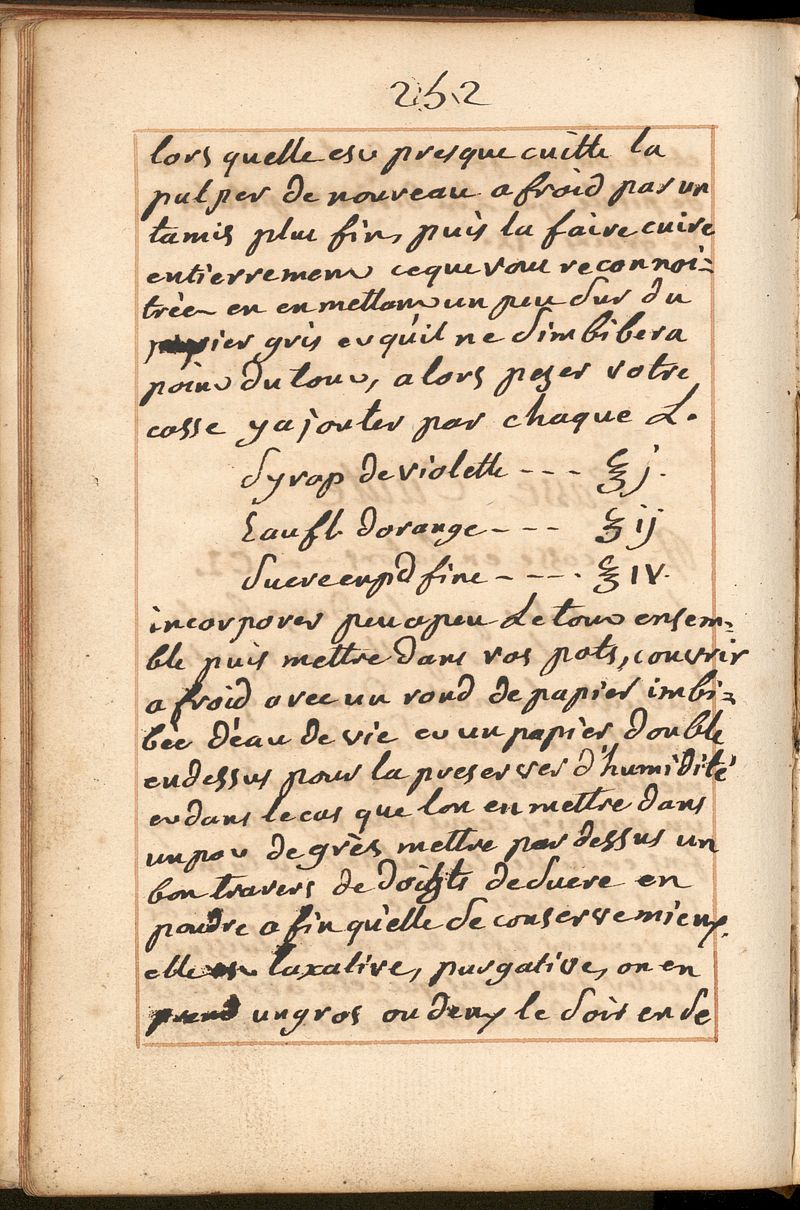 252
lors quelle est presque cuitte la
pulper de nouveau a froid par un
tamis plus fin, puis la faire cuire
entierrement ceque vous reconnoi=
trée en en mettant un peu sur du
papier gris et qu'il ne s'imbibera
point du tout, alors peser votre
casse y ajouter par chaque L.
Syrop de violette - - - ℥ j.
Eau fl d'orange - - - ℥ ij
Sucre en pd fine - - - - ℥ IV.
incorporer peu a peu Le tout ensem=
ble puis mettre dans vos pots, couvrir
a froid avec un rond de papier imbi=
bée d'éau de vie et un papier double
en dessus pour la preserver d'humidité
et dans le cas que lon en mettre dans
un pot de grès mettre par dessus un
bon travers de doigts de sucre en
poudre a fin qu'elle se conserve mieux.
elle est laxative, purgative, on en
prend un gros ou deux le soir en se